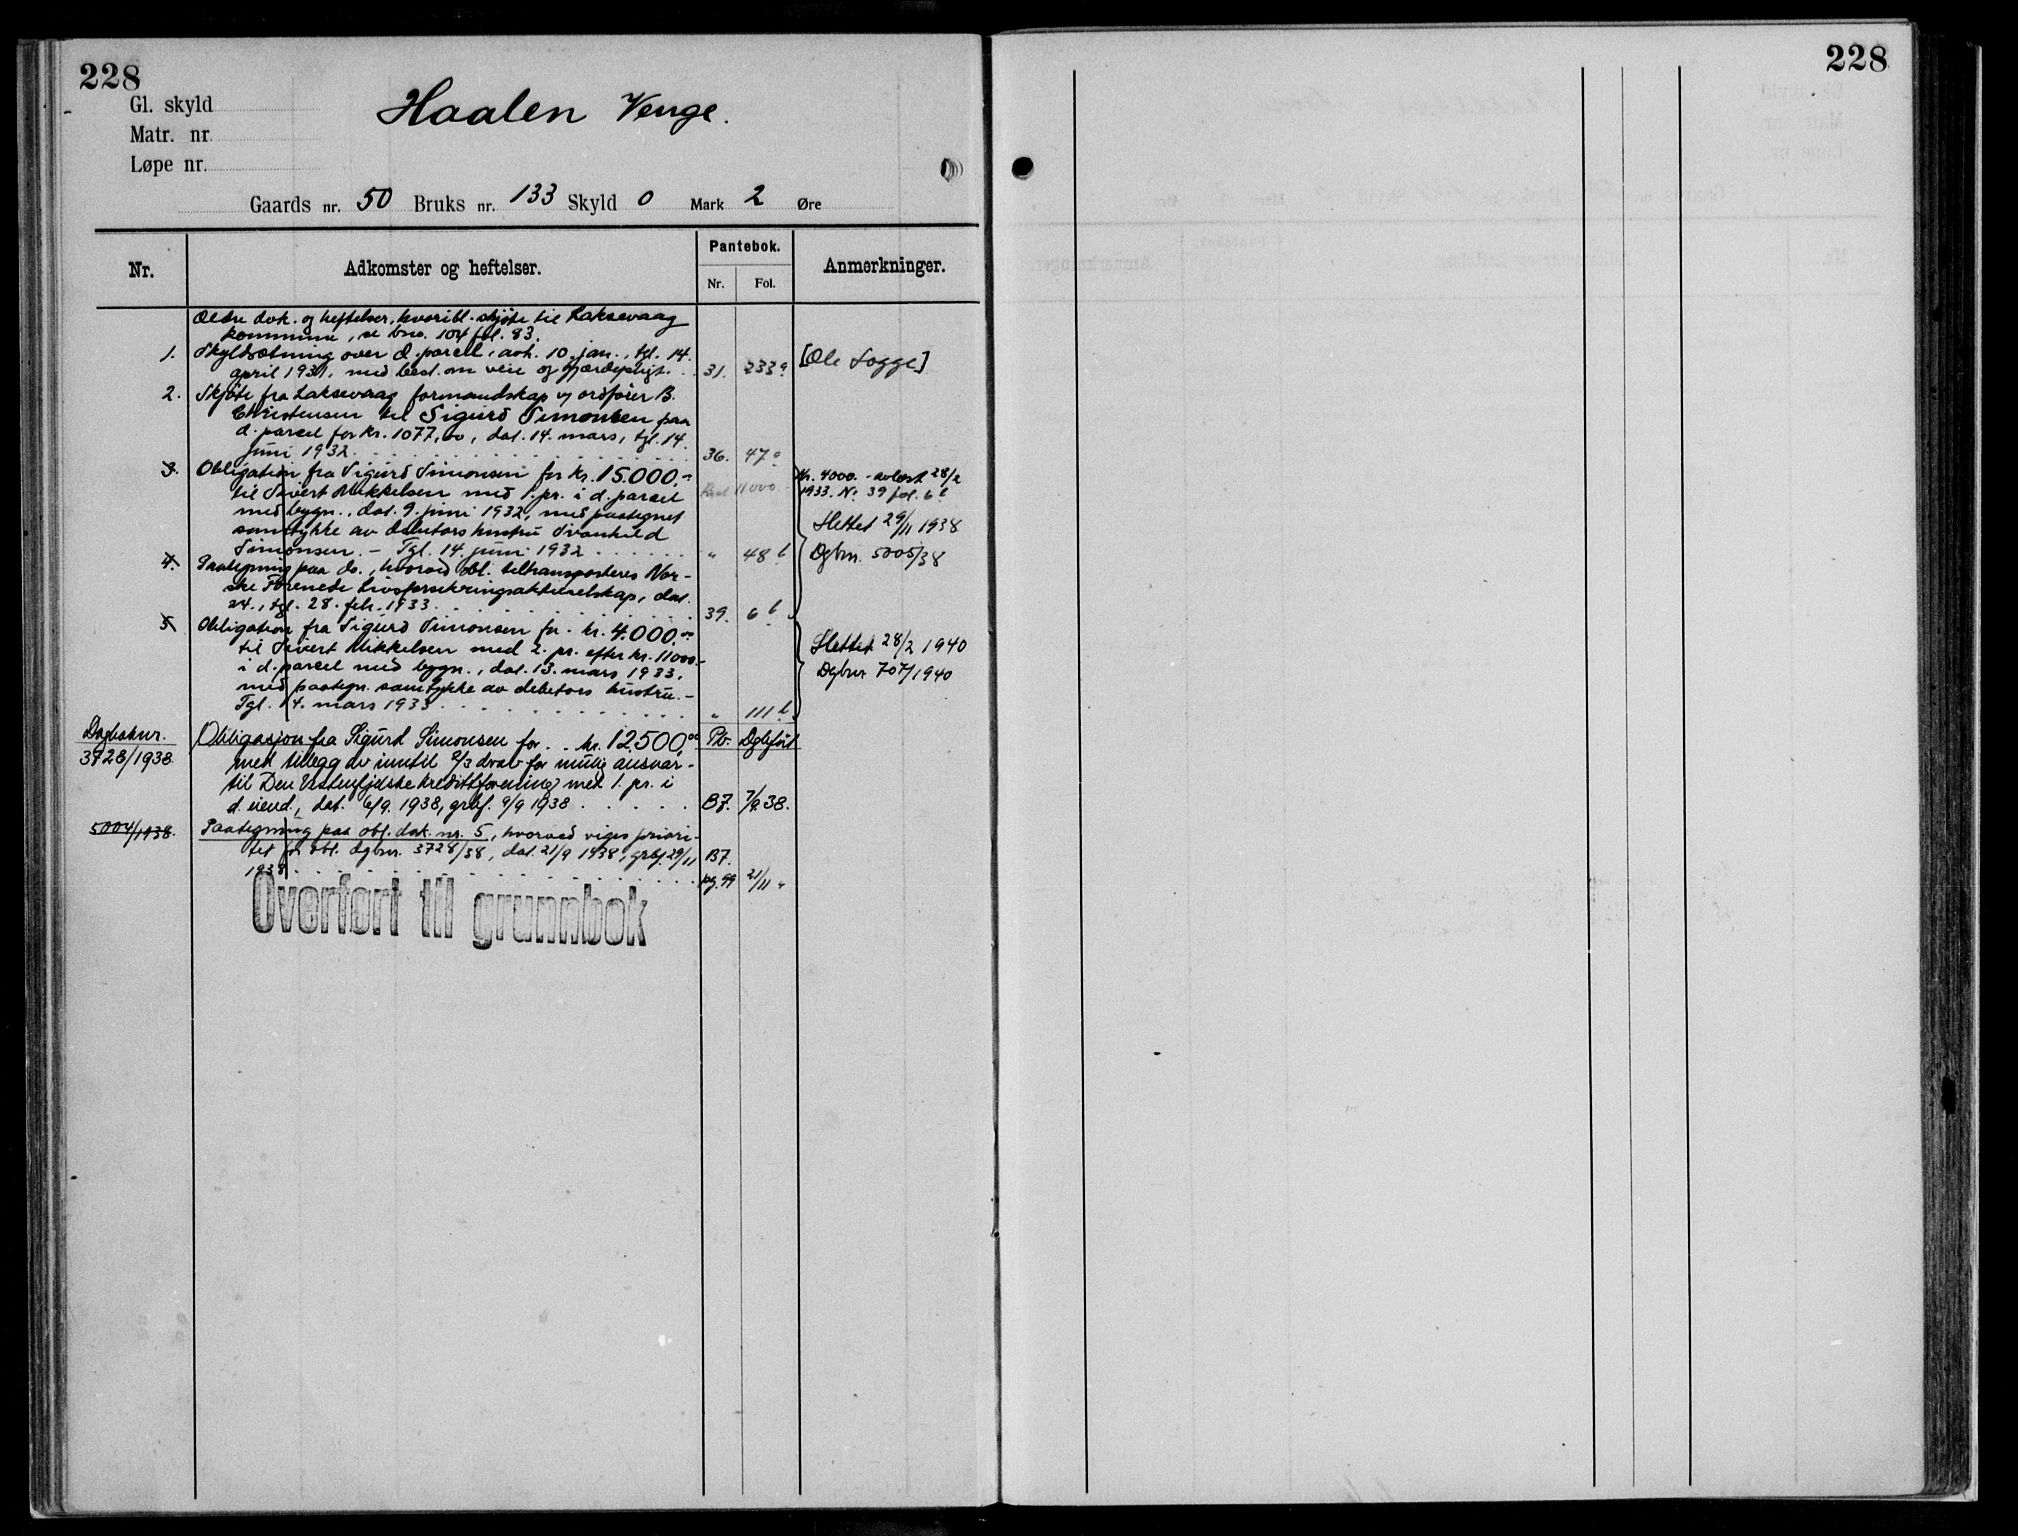 228
Gl. skyld
Matr. nr.
Løpe nr.
Haalen Venge.
Gaards nr. 50 Bruks nr. 133 Skyld 0 Mark 2 Øre
Nr. Adkomster og heftelser. Pantebok. Anmerkninger.
Nr. Fol.
Ældre dok. og heftelser, hvoribl. skjøte til Laksevaag
kommune, se bno. 104 fol. 83.
1. Skyldsætning over d. parcel, avh. 10. jan., tgl. 14.
april 1931, med best. om veie og gjærdepligt. 31. 233a [Ole Fogge]
2. Skjøte fra Laksevaag formandskap v/ ordfører B.
Christensen til Sigurd Simonsen paa
d. parcel for kr. 1077,00, dat. 14. mars, tgl. 14.
juni 1932. 36. 47a
3. Obligation fra Sigurd Simonsen for kr. 15.000.- Kr. 4000.- avlæst 28/2
til Sivert Mikkelsen med 1. pr. i d. parcel Rest 11000. 1933. Nr. 39 fol. 6b
med bygn., dat. 9. juni 1932, med paategnet
samtykke av debetors hustru Svanhild Slettet 29/11 1938
Simonsen. - Tgl. 14. juni 1932 " 48b Dgbnr. 5005/38
4. Paategning paa do., hvorved obl. tiltransporteres Nor-
ske Forenede Livsforsikringsaktieselskap, dat.
24., tgl. 28. febr. 1933. 39. 6b
5. Obligation fra Sigurd Simonsen for kr. 4.000.-
til Sivert Mikkelsen med 2. pr. efter kr. 11000.- Slettet 28/2 1940
i d. parcel med bygn., dat. 13. mars 1933, Dgbnr 707/1940
med paategn. samtykke av debetors hustru. -
Tgl. 14. mars 1933 " 111b
Dagboknr. Obligasjon fra Sigurd Simonsen for kr. 12.500,00 Pb. Dgbført
3728/1938. med tillegg av inntil 2/3 derav for mulig ansvar -
til Den Vestenfjeldske kredittforening med 1. pr. i
d. eiend., dat. 6/9. 1938, grbf. 9/9 1938 B7. 7/9. 38.
5004/1938. Paategning paa obl. dok. nr. 5, hvorved viges priori-
tet for obl. dgbnr. 3728/38, dat. 21/9 1938, grbf. 29/11 B7.
1938. pg. 99 21/11 "
Overført til grunnbok
228